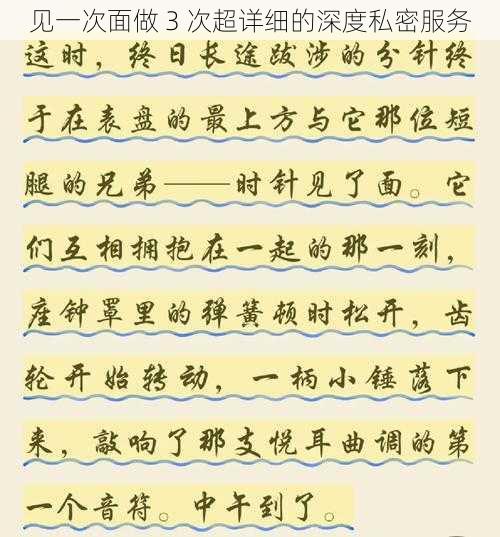 见一次面做 3 次超详细的深度私密服务
这时，终日长途跋涉的分针终
于在表盘的最上方与它那位短
腿的兄弟——时针见了面。它
们互相拥抱在一起的那一刻，
座钟罩里的弹簧顿时松开，齿
轮开始转动，一柄小锤落下
来，敲响了那支悦耳曲调的第
一个音符。中午到了。